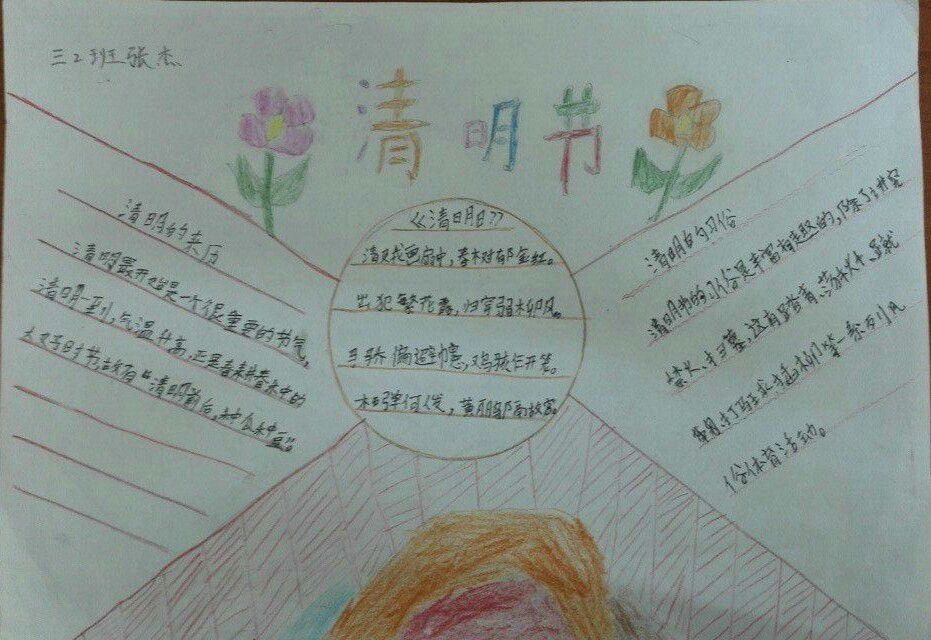 三2班张杰
清明节
清明的来历
清明最开始是一个很重要的节气,
清明一到,气温升高,正是春耕春种的
大好时节,故有“清明前后,种瓜种豆”。
《清明日》
清 中,春 郁金红。
出犯繁花露,归穿弱柳风。
骄偏避幰,鸡骇乍开笼。
柘弹何人发,黄 故宫。
清明的习俗
清明节的习俗是丰富有趣的,除了讲究
禁火、扫墓,还有踏青、荡秋千、蹴
鞠、打马球、插柳等一系列风
俗体育活动。